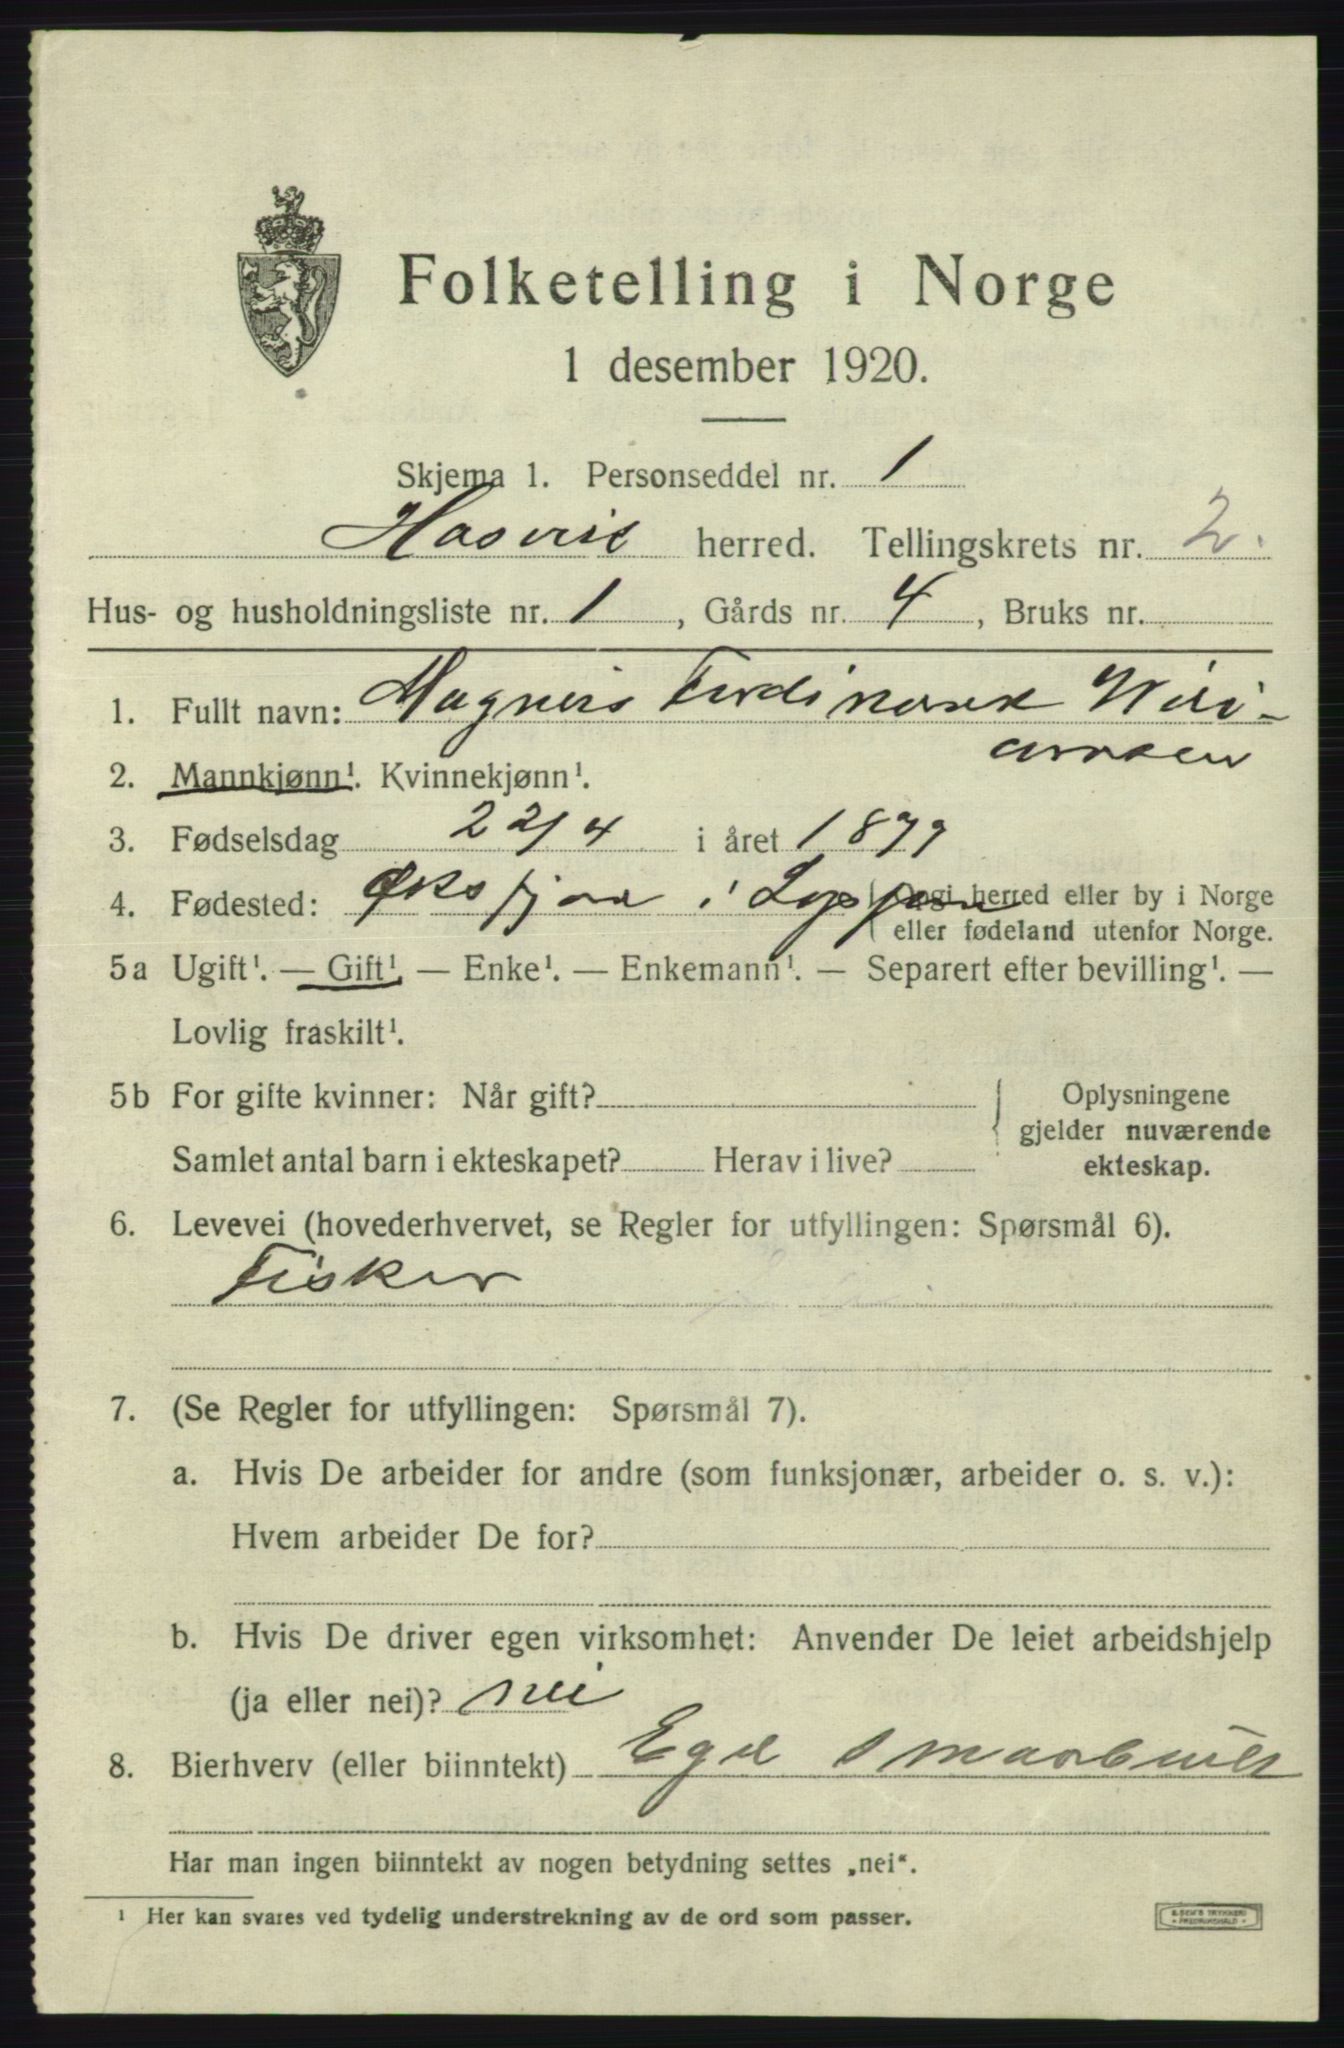 Folketelling i Norge
1 desember 1920.
Skjema 1. Personseddel nr. 1
Hasvik herred. Tellingskrets nr. 2.
Hus- og husholdningsliste nr. 1, Gårds nr. 4, Bruks nr.
1. Fullt navn: Magnus Ferdinand
2. Mannkjønn¹. Kvinnekjønn¹.
3. Fødselsdag 22/4 i året 1879
4. Fødested: Øksfjord i Loppen (Opgi herred eller by i Norge
eller fødeland utenfor Norge.
5a Ugift¹. — Gift¹. — Enke¹. — Enkemann¹. — Separert efter bevilling¹. —
Lovlig fraskilt¹.
5b For gifte kvinner: Når gift?
Samlet antal barn i ekteskapet? Herav i live?
Oplysningene
gjelder nuværende
ekteskap.
6. Levevei (hovederhvervet, se Regler for utfyllingen: Spørsmål 6).
Fisker
7. (Se Regler for utfyllingen: Spørsmål 7).
a. Hvis De arbeider for andre (som funksjonær, arbeider o. s. v.):
Hvem arbeider De for?
b. Hvis De driver egen virksomhet: Anvender De leiet arbeidshjelp
(ja eller nei)? nei
8. Bierhverv (eller biinntekt)
Har man ingen biinntekt av nogen betydning settes „nei“.
¹ Her kan svares ved tydelig understrekning av de ord som passer.